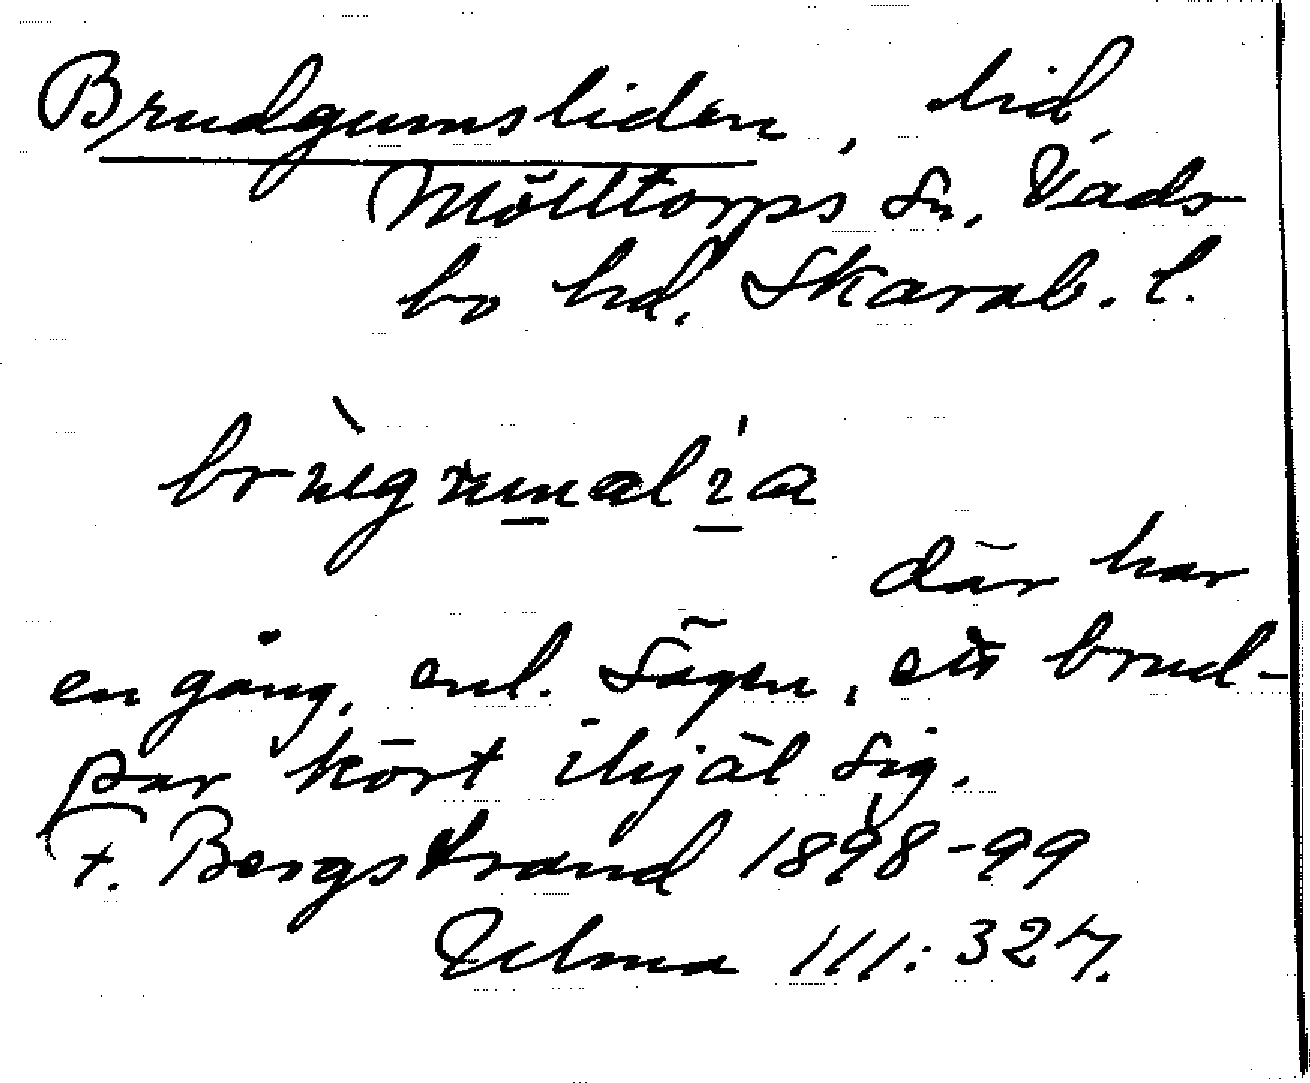 Brudgumsliden, lid,
Mölltorps sn, Vads-
bo hd. Skarab. l.
där har
en gång, enl. sägen, ett brud-
par kört ihjäl sig.
F. Bergstrand 1898-99
Ulma 111:327.